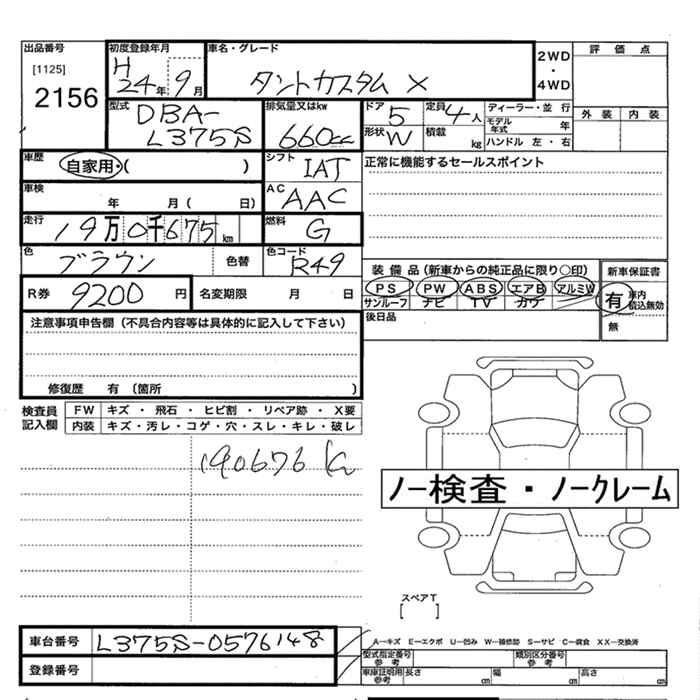 出品番号 初度登録年月 車名・グレード 評 価 点
[1125] H 2WD
2156 24年 9月 タントカスタム X ・
4WD
型式 排気量又はkw ドア 定員 ディーラー・並 行 外 装 内 装
DBA- 5 4人 モデル年式 年
L375S 660cc 形状 W 積載 kg ハンドル 左・右
車歴 自家用・( ) シフト IAT 正常に機能するセールスポイント
車検 年 月( 日) AC AAC
走行 19万0千675km 燃料 G
色 ブラウン 色替 色コード R49
装 備 品(新車からの純正品に限り○印) 新車保証書
R券 9200円 名変期限 月 日 PS PW ABS エアB アルミW 有 車内 積込無効
サンルーフ ナビ TV カワ
注意事項申告欄(不具合内容等は具体的に記入して下さい) 後日品 無
修復歴 有(箇所 )
検査員 FW キズ ・ 飛石 ・ ヒビ割 ・ リペア跡 ・ X要
記入欄 内装 キズ・汚レ・コゲ・穴・スレ・キレ・破レ
190676 K
ノー検査・ノークレーム
スペアT
[ ]
車台番号 L375S-0576148 A―キズ E―エクボ U―凹み W―補修跡 S―サビ C―腐食 XX―交換済
型式指定番号 参考 類別区分番号 参考
登録番号 車庫証明用 参考 長さ cm 幅 cm 高さ cm